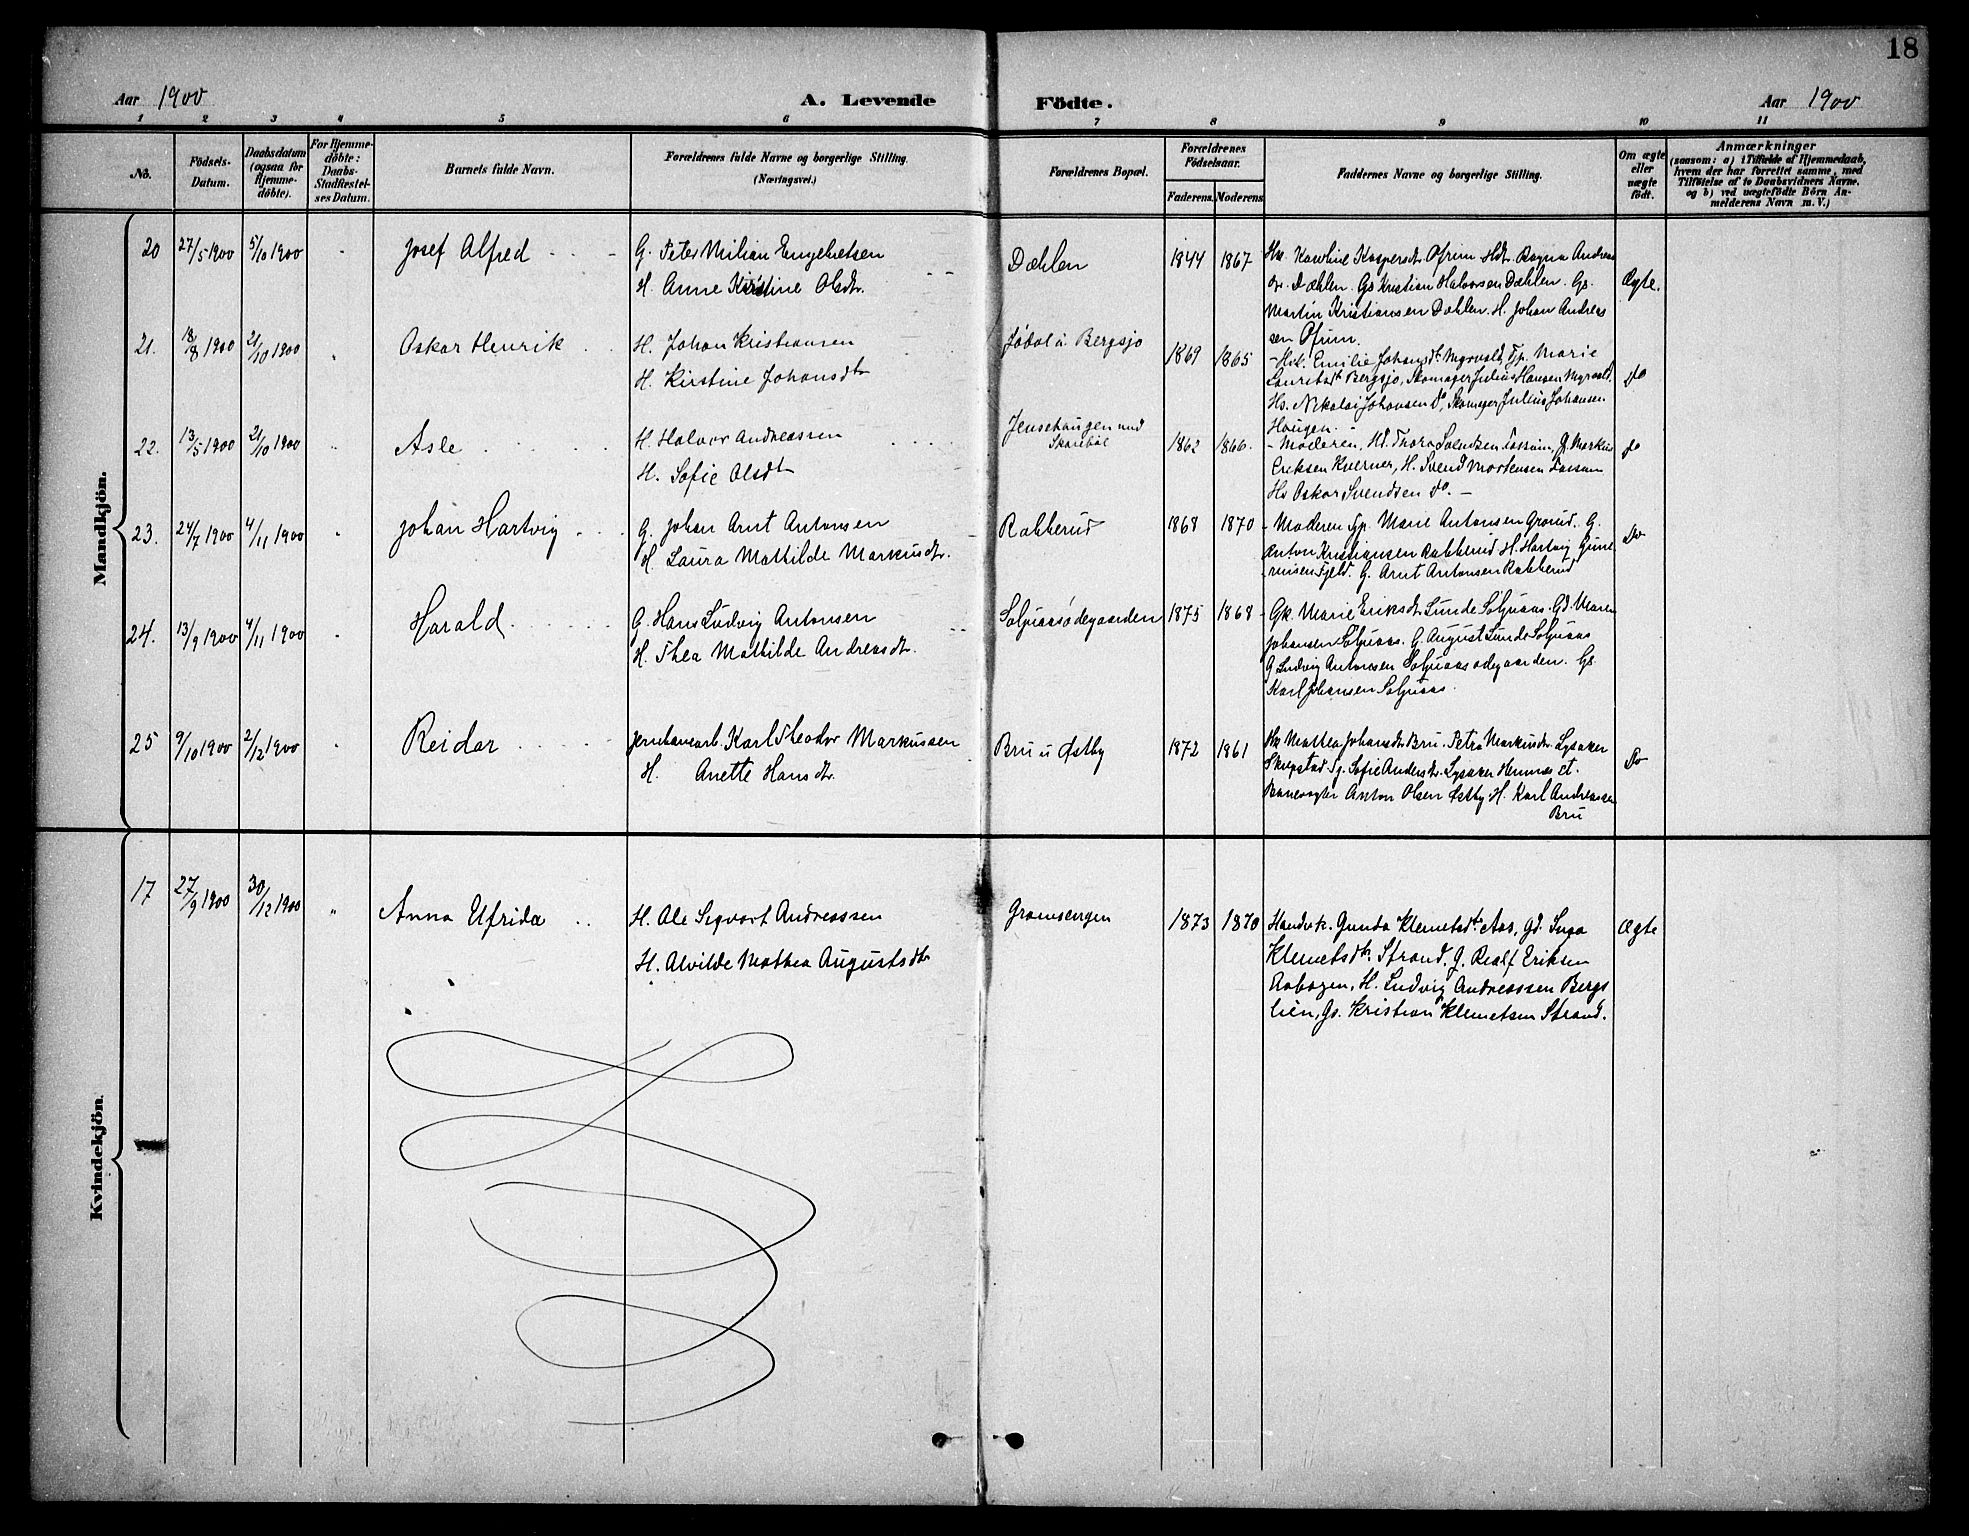 18
Aar 1900
A. Levende Födte.
Aar 1900
1 2 3 4 5 6 7 8 9 10 11
No.
Födsels-
Datum.
Daabsdatum
(ogsaa for
Hjemme-
döbte).
For Hjemme-
döbte:
Daabs-
Stadfæstel-
ses Datum.
Barnets fulde Navn.
Forældrenes fulde Navne og borgerlige Stilling.
(Næringsvei.)
Forældrenes Bopæl.
Forældrenes
Födselsaar.
Faderens. Moderens.
Faddernes Navne og borgerlige Stilling.
Om ægte
eller
uægte
födt.
Anmærkninger
(saasom: a) i Tilfælde af Hjemmedaab,
hvem der har forrettet samme, med
Tilföielse af to Daabsvidners Navne,
og b) ved uægtefödte Börn An-
melderens Navn m. V.)
Mandkjön.
20 27/5 1900 5/10 1900 Josef Alfred
G. Peter Milian Engebretsen
H. Anne Kirstine Olsdtr.
Dæhlen 1844 1867
Karoline Kaspersdt. Ofrim Ragna Andreas
Dæhlen. Gs Kristian Halvorsen Dæhlen. Gs.
Martin Kristiansen Dæhlen. H. Johan Andreas
sen Ofrim.
Ægte.
21. 18/8 1900 21/10 1900 Oskar Henrik
H. Johan Kristiansen
H. Kirstine Johansdtr
Bergsjø 1869 1865
Emilie Johansdt. Myrvold, Tp. Marie
Lauritsdt Bergsjø, Skomager Julius Hansen Myrvold.
Hs. Nikolai Johansen do, Skomager Julius Johansen
Haugen.
do
22. 13/5 1900 21/10 1900 Asle
H. Halvor Andreassen
H. Sofie Olsdt
Jenshaugen und
1862 1866.
Moderen, Thora Svendsen G. Markus
Eriksen Kverner, H. Svend Mortensen
Hs Oskar Svendsen do.
do
23. 24/7 1900 4/11 1900 Johan Hartvig
G. Johan Arnt Antonsen
H. Laura Mathilde Markusdtr.
Rabberud 1868 1870
Moderen Tp. Marie Antonsen G.
Anton Kristiansen Rabberud H. Hartvig
Fjeld. G. Arnt Antonsen Rabberud
Do
24. 13/9 1900 4/11 1900 Harald
G. Hans Ludvig Antonsen
H. Thea Mathilde Andreasdt.
1875 1868
Gk. Marie Eriksdt. Lunde Gd. Maren
Johansen G. August Lunde
G Ludvig Antonsen Gs
Karl Johansen
25 9/10 1900 2/12 1900 Reidar
Jernbanearb. Karl Theodor Markussen
H. Anette Hansdtr.
Bru u Østby 1872 1861
Mathea Johansdt Bru. Petra Markusdt. Lysaker
Sofie Andersdt. Lysaker Hemnes
Banevogter Anton Olsen Østby H. Karl Andreassen
Bru
Do
Kvindekjön.
17 27/9 1900 30/12 1900 " Anna Elfrida
H. Ole Sigvart Andreassen
H. Alvilde Mathea Augustsdtr
1873 1870
Gunda Klemetsdt. Aas, Gd. Inga
Klemetsdt. Strand. G. Realf Eriksen
H. Ludvig Andreassen Bergs
lien, Gs. Kristian Klemetsen Strand.
Ægte